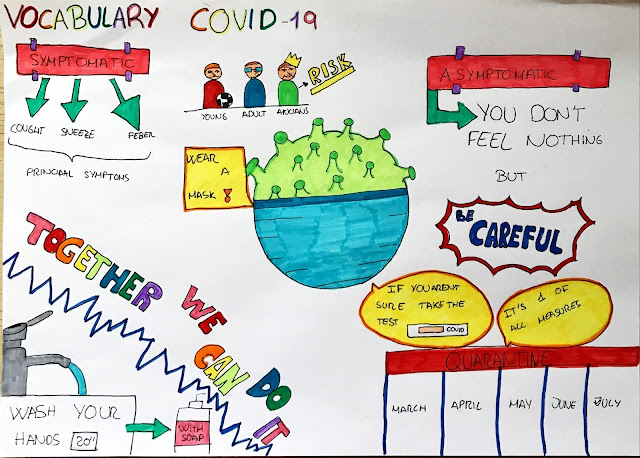 VOCABULARY COVID-19
SYMPTOMATIC
COUGHT SNEEZE FEBER
PRINCIPAL SYMPTOMS
RISK
YOUNG ADULT ANCIANS
WEAR
A
MASK !
A SYMPTOMATIC
YOU DON'T
FEEL NOTHING
BUT
BE
CAREFUL
TOGETHER WE
CAN DO
IT
IF YOU ARENT
SURE TAKE THE
TEST
COVID
IT'S 1 OF
ALL MEASURES
QUARANTINE
MARCH APRIL MAY JUNE JULY
WASH YOUR
HANDS 20"
WITH
SOAP